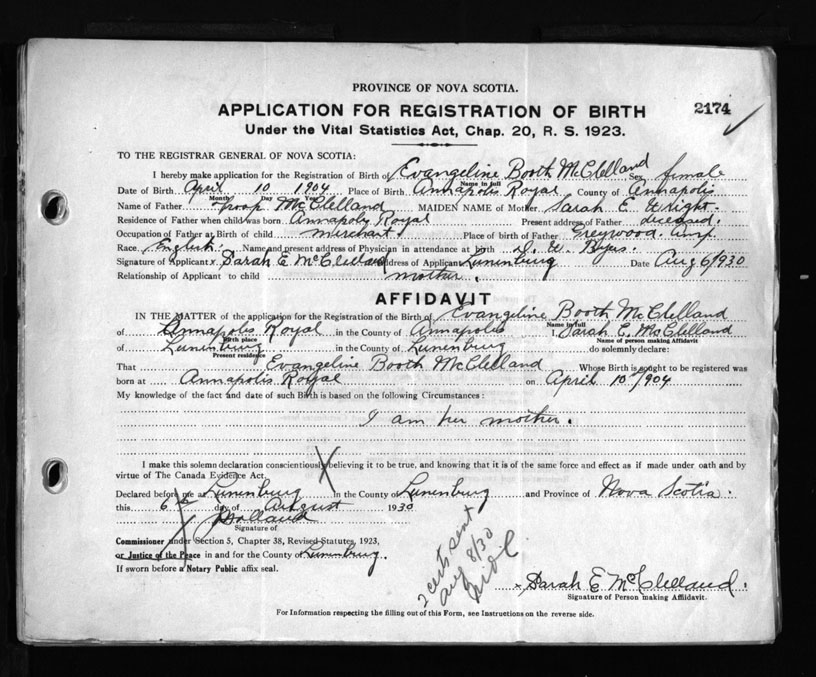 PROVINCE OF NOVA SCOTIA.
APPLICATION FOR REGISTRATION OF BIRTH 2174
Under the Vital Statistics Act, Chap. 20, R. S. 1923.
TO THE REGISTRAR GENERAL OF NOVA SCOTIA:
I hereby make application for the Registration of Birth of Evangeline Booth McClelland Sex female
Name in full
Date of Birth April 10 1904 Place of Birth Annapolis Royal County of Annapolis
Month Day
Name of Father McClelland MAIDEN NAME of Mother Sarah E Wright.
Residence of Father when child was born Annapolis Royal Present address of Father deceased.
Occupation of Father at Birth of child merchant Place of birth of Father Greywood.
Race. English. Name and present address of Physician in attendance at birth
Signature of Applicant x Sarah E McClelland Address of Applicant Lunenburg Date Aug 6/930
Relationship of Applicant to child mother.
AFFIDAVIT
IN THE MATTER of the application for the Registration of the Birth of Evangeline Booth McClelland
Name in full
of Annapolis Royal in the County of Annapolis Sarah E. McClelland
Birth place Name of person making Affidavit
of Lunenburg in the County of Lunenburg do solemnly declare:
Present residence
That Evangeline Booth McClelland Whose Birth is sought to be registered was
born at Annapolis Royal on April 10 1904
My knowledge of the fact and date of such Birth is based on the following Circumstances:
I am her mother.
I make this solemn declaration conscientiously believing it to be true, and knowing that it is of the same force and effect as if made under oath and by
virtue of The Canada Evidence Act.
Declared before me at Lunenburg in the County of Lunenburg and Province of Nova Scotia.
this 6 day of August 1930
Signature of
Commissioner under Section 5, Chapter 38, Revised Statutes, 1923,
or Justice of the Peace in and for the County of Lunenburg.
If sworn before a Notary Public affix seal.
2 certs sent
Aug 8/30
x Sarah E McClelland.
Signature of Person making Affidavit.
For Information respecting the filling out of this Form, see Instructions on the reverse side.